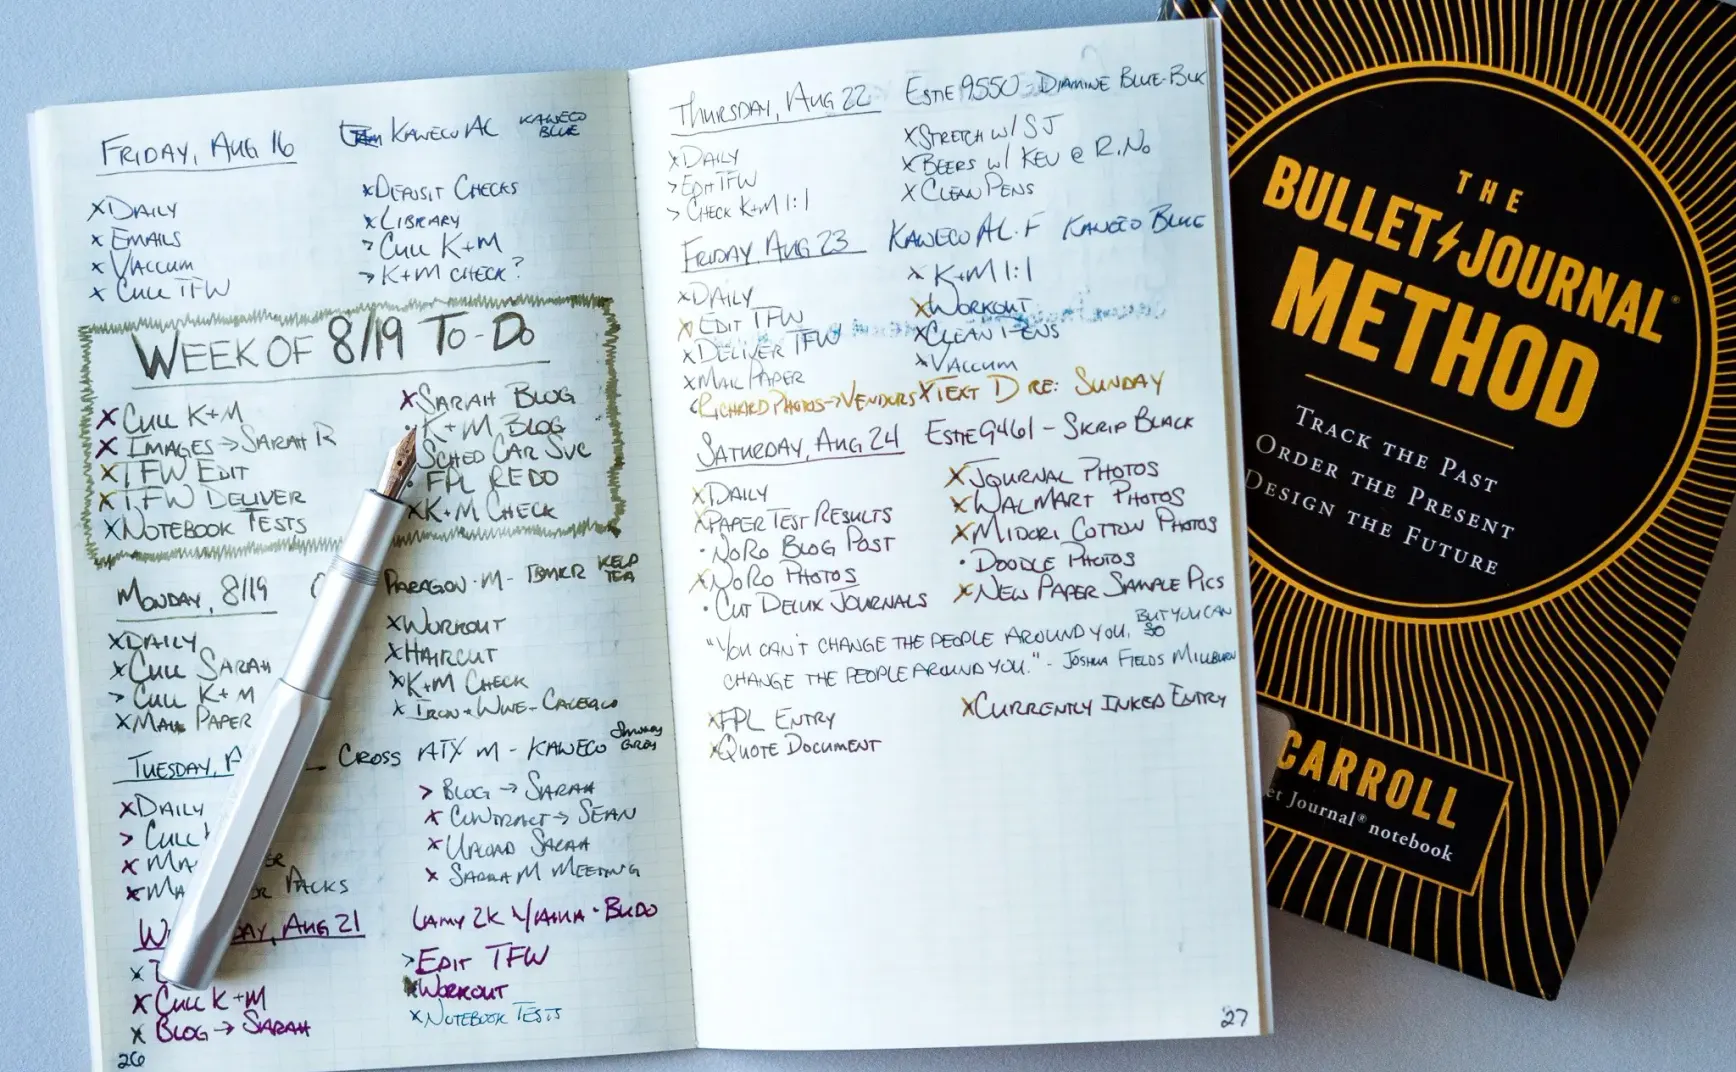 FRIDAY, AUG 16 KAWECO AL KAWECO BLUE
X DAILY
X EMAILS
X VACCUM
X CULL TFW
X DEPOSIT CHECKS
X LIBRARY
> CULL K+M
> K+M CHECK?
WEEK OF 8/19 TO-DO
X CULL K+M
X IMAGES → SARAH R
X TFW EDIT
X TFW DELIVER
X NOTEBOOK TESTS
X SARAH BLOG
• K+M BLOG
SCHED CAR SVC
• FPL REDO
X K+M CHECK
MONDAY, 8/19 PARAGON • M - KELP TEA
X DAILY
X CULL SARAH
> CULL K+M
X MAIL PAPER
X WORKOUT
X HAIRCUT
X K+M CHECK
X IRON + WINE -
TUESDAY, A CROSS ATX M - KAWECO GREY
X DAILY
> CULL
X MA
X MA PACKS
> BLOG → SARAH
X CONTRACT → SEAN
X UPLOAD SARAH
X SARAH M MEETING
W DAY, AUG 21 LAMY 2K • BUDO
X
X CULL K+M
X BLOG → SARAH
> EDIT TFW
WORKOUT
X NOTEBOOK TESTS
26
THURSDAY, AUG 22 ESTIE 9550 DIAMINE BLUE-BLK
X DAILY
> EDIT TFW
> CHECK K+M 1:1
X STRETCH W/ SJ
X BEERS W/ KEV @ R. NO
X CLEAN PENS
FRIDAY AUG 23 KAWECO AL • F KAWECO BLUE
X DAILY
X EDIT TFW
X DELIVER TFW
X MAIL PAPER
X K+M 1:1
X WORKOUT
X CLEAN PENS
X VACCUM
RICHARD PHOTOS → VENDORS X TEXT D RE: SUNDAY
SATURDAY, AUG 24 ESTIE 9461 - SKRIP BLACK
X DAILY
X PAPER TEST RESULTS
• NORO BLOG POST
X NORO PHOTOS
• CUT DELUX JOURNALS
X JOURNAL PHOTOS
X WALMART PHOTOS
X MIDORI COTTON PHOTOS
• DOODLE PHOTOS
X NEW PAPER SAMPLE PICS
"YOU CAN'T CHANGE THE PEOPLE AROUND YOU, BUT YOU CAN
CHANGE THE PEOPLE AROUND YOU." - JOSHUA FIELDS MILLBURN
X FPL ENTRY
X QUOTE DOCUMENT
X CURRENTLY INKED ENTRY
27
THE
BULLET JOURNAL®
METHOD
TRACK THE PAST
ORDER THE PRESENT
DESIGN THE FUTURE
CARROLL
et Journal® notebook